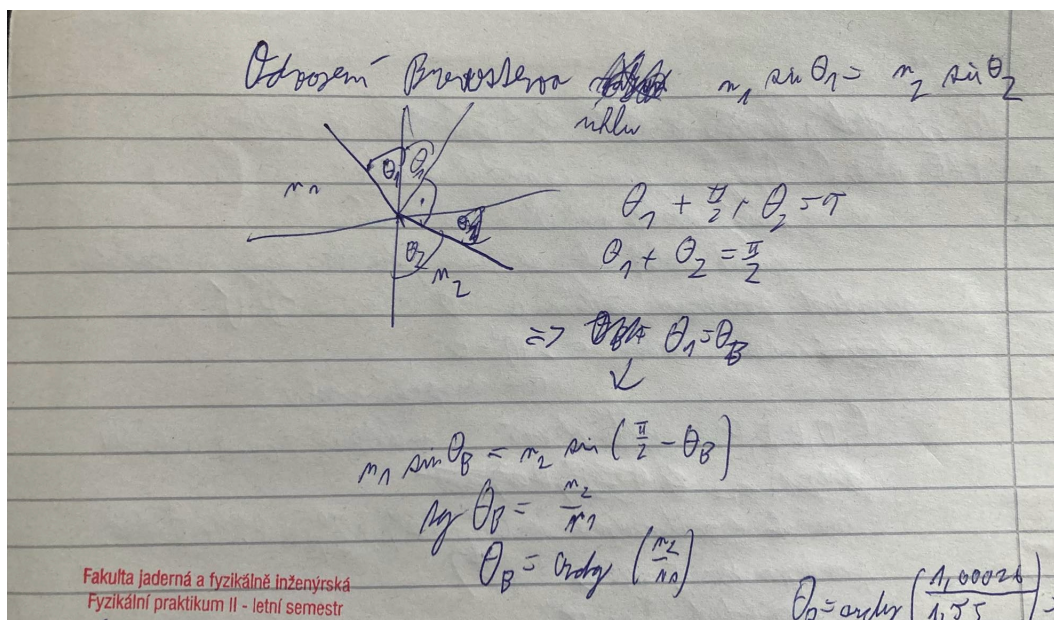 Odvození Brewsterova úhlu
n₁ sin θ₁ = n₂ sin θ₂
θ₁ θ₁
n₁
θ₂
n₂
θ₁ + π/2 + θ₂ = π
θ₁ + θ₂ = π/2
=> θ₁ = θ_B
n₁ sin θ_B = n₂ sin (π/2 - θ_B)
tg θ_B = n₂/n₁
θ_B = arctg (n₂/n₁)
Fakulta jaderná a fyzikálně inženýrská
Fyzikální praktikum II - letní semestr